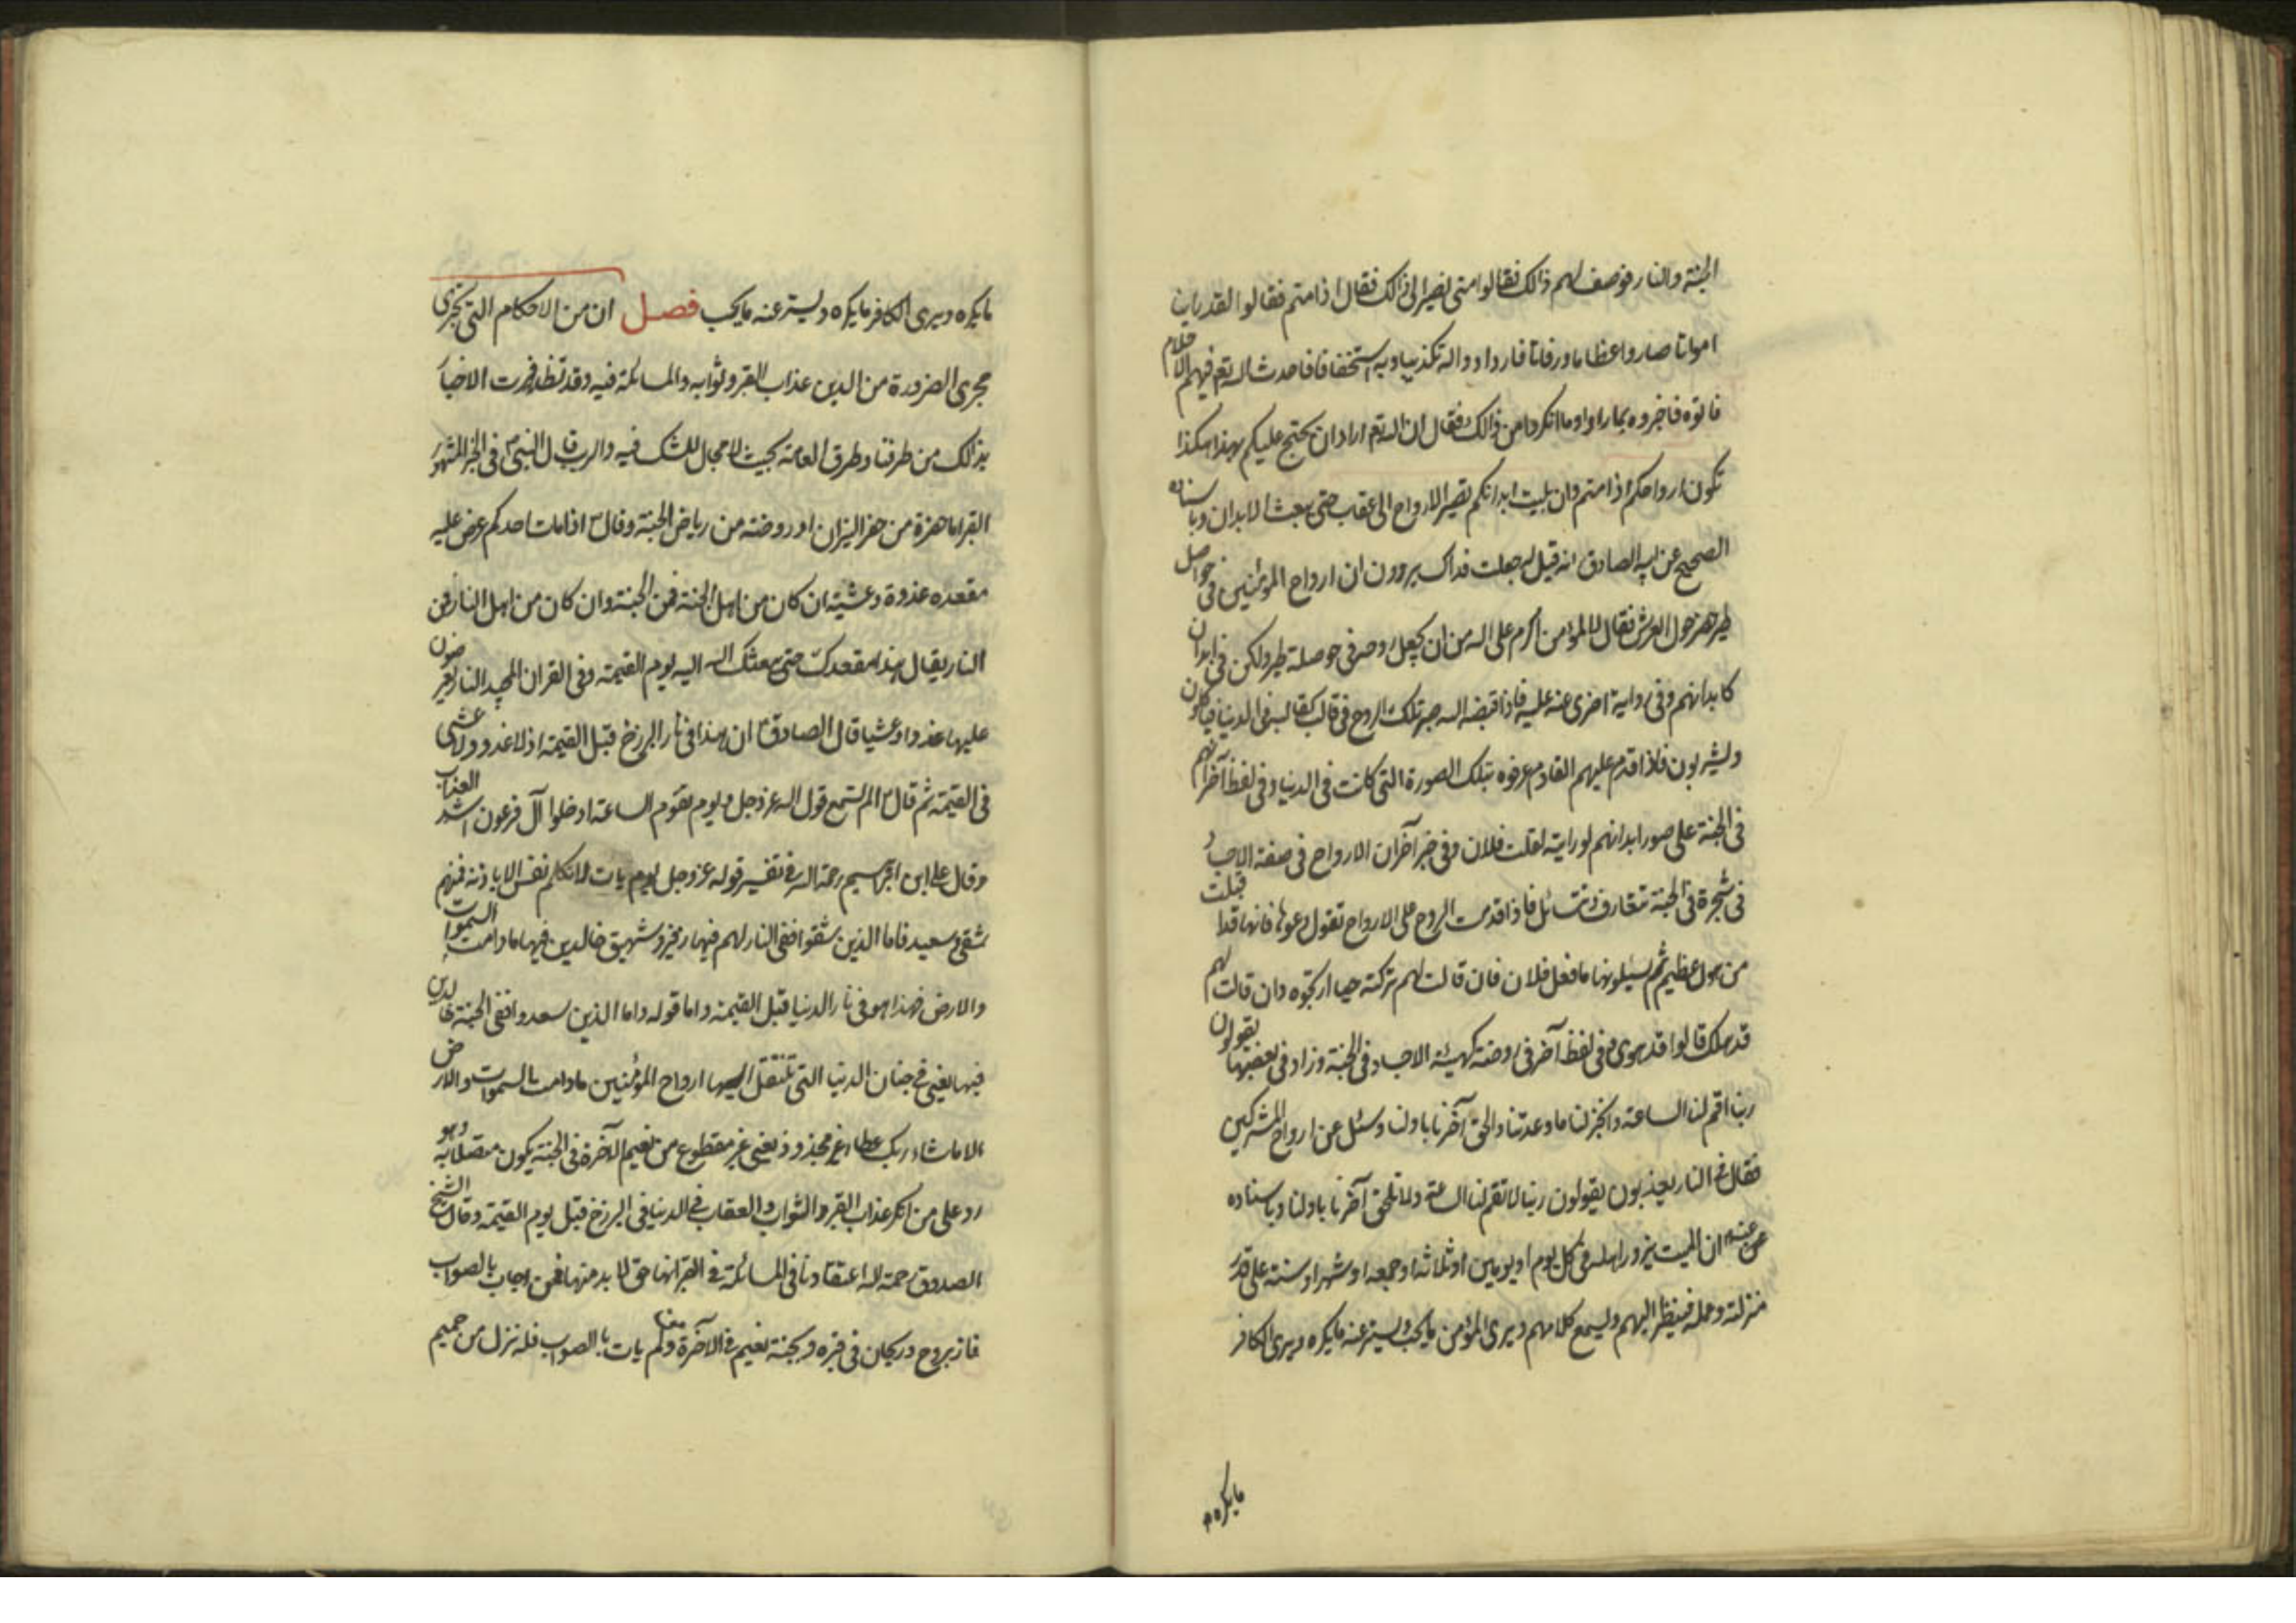 الجنة والنار فوصف لهم ذالك فقالوا متى نصير الى ذالك فقال اذا متم فقالوا لقد راينا
امواتا صاروا عظاما ورفاتا فازدادوا له تكذيبا وبه استخفافا فاحدث الله تع فيهم الاحلام
فاتوه فاخبروه بما راوا وما انكروا من ذالك فقال ان الله تع اراد ان يحتج عليكم بهذا هكذا
تكون ارواحكم اذا متم وان بليت ابدانكم تصير الارواح الى عقاب حتى يبعث الابدان وباسناده
الصحيح عن ابيه الصادق انه قيل له جعلت فداك يروون ان ارواح المؤمنين فى حواصل
طير خضر حول العرش فقال لا المؤمن اكرم على الله من ان يجعل روحه فى حوصلة طير ولكن فى ابدان
كابدانهم وفى رواية اخرى عنه عليه فاذا قبضه الله صير تلك الروح فى قالب كقالبه فى الدنيا فياكلون
ويشربون فاذا قدم عليهم القادم عرفوه بتلك الصورة التى كانت فى الدنيا وفى لفظ آخر انهم
فى الجنة على صور ابدانهم لو رايته لقلت فلان وفى خبر آخر ان الارواح فى صفة الاجساد
فى شجرة فى الجنة تتعارف وتتسائل فاذا قدمت الروح على الارواح تقول دعوها فانها قد اقبلت
من هول عظيم ثم يسئلونها ما فعل فلان فان قالت لهم تركته حيا ارتجوه وان قالت لهم
قد هلك قالوا قد هوى وفى لفظ آخر فى روضة كهيئة الاجساد فى الجنة وزاد فى بعضها يقولون
ربنا اقم لنا الساعة وانجز لنا ما وعدتنا والحق آخرنا باولنا وسئل عن ارواح المشركين
فقال فى النار يعذبون يقولون ربنا لا تقم لنا الساعة ولا تلحق آخرنا باولنا وباسناده
عن عنه ان الميت يزور اهله فى كل يوم او يومين او ثلاثة او جمعة او شهر او سنة على قدر
منزلته وعمله فينظر اليهم ويسمع كلامهم ويرى المؤمن ما يحب ويستر عنه ما يكره ويرى الكافر
ما يكره
ما يكره ويرى الكافر ما يكره ويستر عنه ما يحب فصل ان من الاحكام التى تجرى
مجرى الضرورة من الدين عذاب القبر وثوابه والمسائلة فيه وقد تظافرت الاخبار
بذالك من طرقنا وطرق العامة بحيث لا مجال للشك فيه والريب قال النبى ص فى الخبر المشهور
القبر اما حفرة من حفر النيران او روضة من رياض الجنة وقال ص اذا مات احدكم عرض عليه
مقعده غدوة وعشية ان كان من اهل الجنة فمن الجنة وان كان من اهل النار فمن
النار يقال هذا مقعدك حتى يبعثك الله اليه يوم القيمة وفى القران المجيد النار يعرضون
عليها غدوا وعشيا قال الصادق ع ان هذا فى نار البرزخ قبل القيمة اذ لا غدو ولا عشى
فى القيمة ثم قال الم تستمع قول الله عز وجل ويوم تقوم الساعة ادخلوا آل فرعون اشد العذاب
وقال على ابن ابرهيم رحمة الله فى تفسير قوله عز وجل يوم يات لا تكلم نفس الا باذنه فمنهم
شقى وسعيد فاما الذين شقوا ففى النار لهم فيها زفير وشهيق خالدين فيها ما دامت السموات
والارض فهذا هو فى نار الدنيا قبل القيمة واما قوله واما الذين سعدوا ففى الجنة خالدين
فيها يعنى فى جنان الدنيا التى تنتقل اليها ارواح المؤمنين ما دامت السموات والارض
الا ما شاء ربك عطاء غير مجذوذ يعنى غير مقطوع من نعيم الآخرة فى الجنة يكون متصلا به وهو
رد على من انكر عذاب القبر والثواب والعقاب فى الدنيا فى البرزخ قبل يوم القيمة وقال الشيخ
الصدوق رحمة الله اعتقادنا فى المسائلة فى القبر انها حق لا بد منها فمن اجاب بالصواب
فاز بروح وريحان فى قبره وبجنة نعيم فى الآخرة ولم يات بالصواب فله نزل من حميم